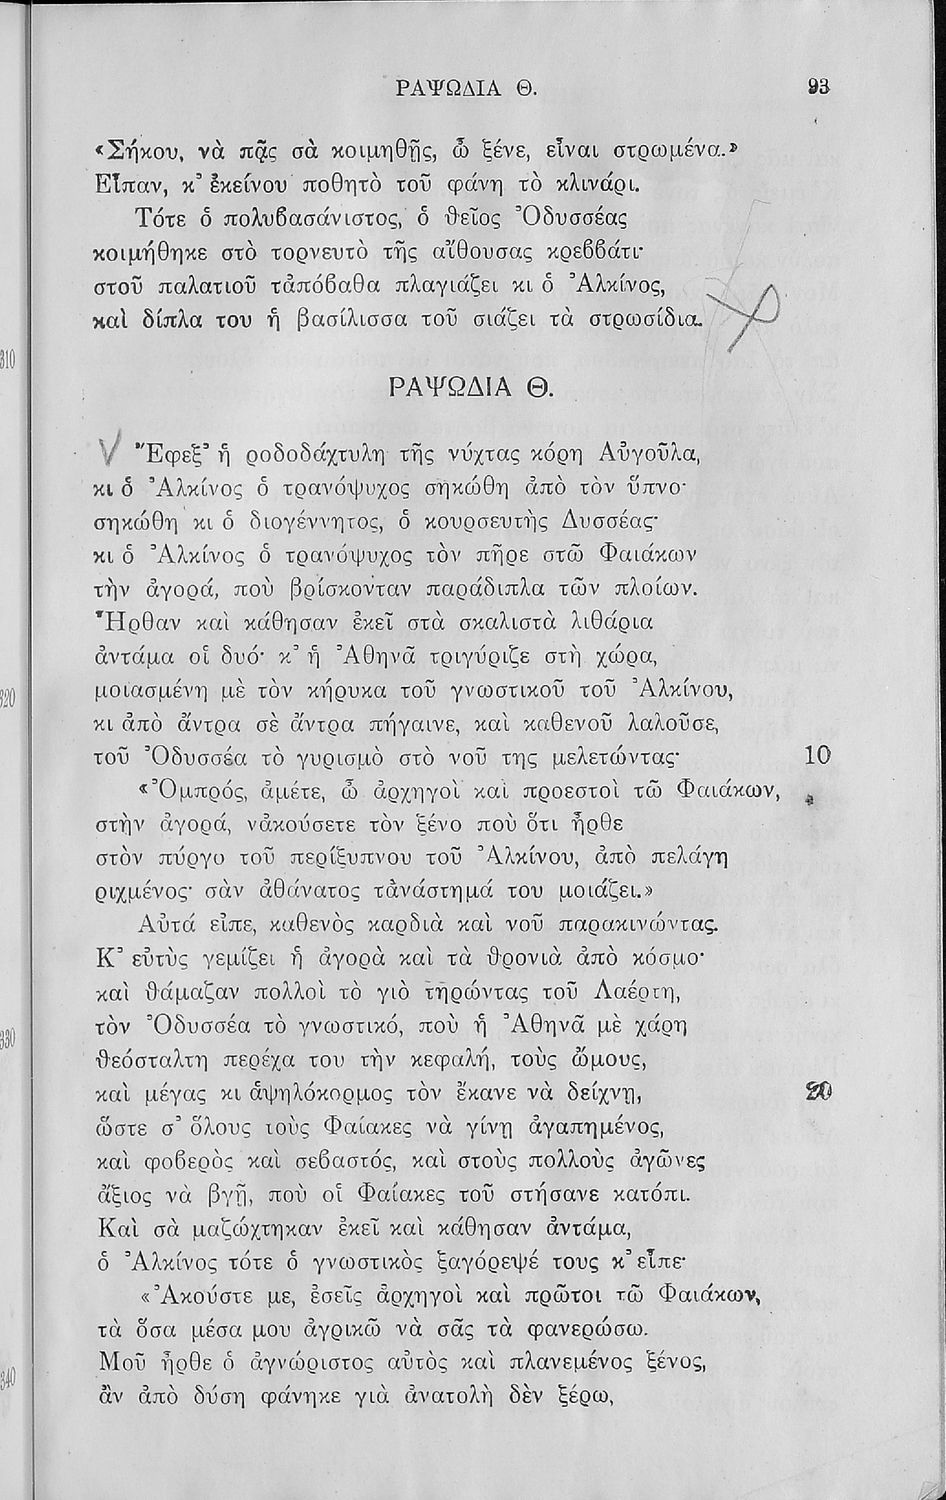 ΡΑΨΩΔΙΑ Θ. 93
«Σήκου, νὰ πᾷς σὰ κοιμηθῇς, ὦ ξένε, εἶναι στρωμένα.»
Εἶπαν, κ᾿ ἐκείνου ποθητὸ τοῦ φάνη τὸ κλινάρι.
Τότε ὁ πολυβασάνιστος, ὁ θεῖος Ὀδυσσέας
κοιμήθηκε στὸ τορνευτὸ τῆς αἴθουσας κρεββάτι·
στοῦ παλατιοῦ τἀπόβαθα πλαγιάζει κι ὁ Ἀλκίνος,
καὶ δίπλα του ἡ βασίλισσα τοῦ σιάζει τὰ στρωσίδια.
310
ΡΑΨΩΔΙΑ Θ.
Ἔφεξ᾿ ἡ ροδοδάχτυλη τῆς νύχτας κόρη Αὐγοῦλα,
κι ὁ Ἀλκίνος ὁ τρανόψυχος σηκώθη ἀπὸ τὸν ὕπνο·
σηκώθη κι ὁ διογέννητος, ὁ κουρσευτὴς Δυσσέας·
κι ὁ Ἀλκίνος ὁ τρανόψυχος τὸν πῆρε στῶ Φαιάκων
τὴν ἀγορά, ποὺ βρίσκονταν παράδιπλα τῶν πλοίων.
Ἦρθαν καὶ κάθησαν ἐκεῖ στὰ σκαλιστὰ λιθάρια
ἀντάμα οἱ δυό· κ᾿ ἡ Ἀθηνᾶ τριγύριζε στὴ χώρα,
320 μοιασμένη μὲ τὸν κήρυκα τοῦ γνωστικοῦ τοῦ Ἀλκίνου,
κι ἀπὸ ἄντρα σὲ ἄντρα πήγαινε, καὶ καθενοῦ λαλοῦσε,
τοῦ Ὀδυσσέα τὸ γυρισμὸ στὸ νοῦ της μελετώντας· 10
«Ὀμπρός, ἀμέτε, ὦ ἀρχηγοὶ καὶ προεστοὶ τῶ Φαιάκων,
στὴν ἀγορά, νἀκούσετε τὸν ξένο ποὺ ὅτι ἦρθε
στὸν πύργο τοῦ περίξυπνου τοῦ Ἀλκίνου, ἀπὸ πελάγη
ριχμένος· σὰν ἀθάνατος τἀνάστημά του μοιάζει.»
Αὐτά εἶπε, καθενὸς καρδιὰ καὶ νοῦ παρακινώντας.
Κ᾿ εὐτὺς γεμίζει ἡ ἀγορὰ καὶ τὰ θρονιὰ ἀπὸ κόσμο·
καὶ θάμαζαν πολλοὶ τὸ γιὸ τηρώντας τοῦ Λαέρτη,
330 τὸν Ὀδυσσέα τὸ γνωστικό, ποὺ ἡ Ἀθηνᾶ μὲ χάρη
θεόσταλτη περέχα του τὴν κεφαλή, τοὺς ὤμους,
καὶ μέγας κι ἁψηλόκορμος τὸν ἔκανε νὰ δείχνῃ, 20
ὥστε σ᾿ ὅλους τοὺς Φαίακες νὰ γίνῃ ἀγαπημένος,
καὶ φοβερὸς καὶ σεβαστός, καὶ στοὺς πολλοὺς ἀγῶνες
ἄξιος νὰ βγῇ, ποὺ οἱ Φαίακες τοῦ στήσανε κατόπι.
Καὶ σὰ μαζώχτηκαν ἐκεῖ καὶ κάθησαν ἀντάμα,
ὁ Ἀλκίνος τότε ὁ γνωστικὸς ξαγόρεψέ τους κ᾿ εἶπε·
«Ἀκούστε με, ἐσεῖς ἀρχηγοὶ καὶ πρῶτοι τῶ Φαιάκων,
τὰ ὅσα μέσα μου ἀγρικῶ νὰ σᾶς τὰ φανερώσω.
340 Μοῦ ἦρθε ὁ ἀγνώριστος αὐτὸς καὶ πλανεμένος ξένος,
ἂν ἀπὸ δύση φάνηκε γιὰ ἀνατολὴ δὲν ξέρω,